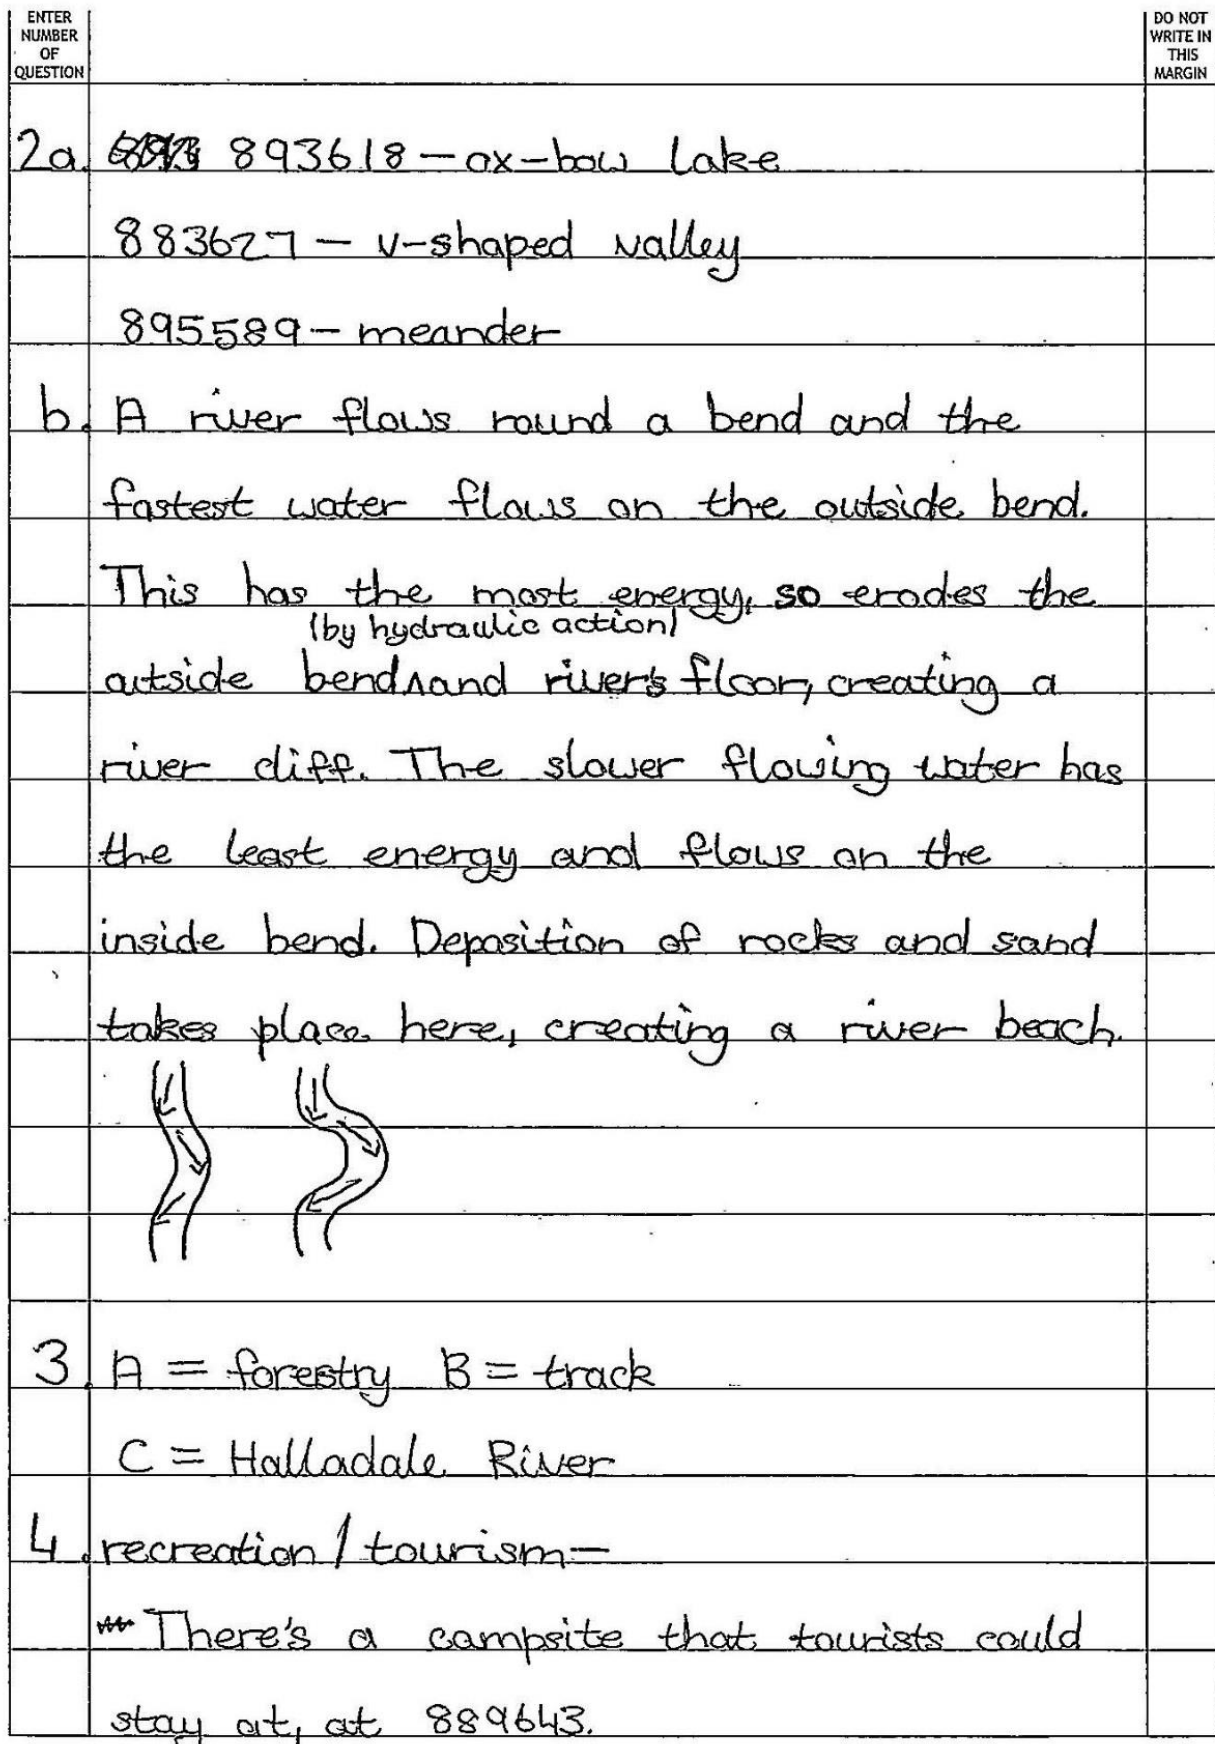 ENTER
NUMBER
OF
QUESTION
DO NOT
WRITE IN
THIS
MARGIN
2a. 893618 – ox-bow lake
883627 – v-shaped valley
895589 – meander
b. A river flows round a bend and the
fastest water flows on the outside bend.
This has the most energy, so erodes the
(by hydraulic action)
outside bend and river's floor, creating a
river cliff. The slower flowing water has
the least energy and flows on the
inside bend. Deposition of rocks and sand
takes place here, creating a river beach.
3. A = forestry B = track
C = Halladale River
4. recreation / tourism –
There's a campsite that tourists could
stay at, at 889643.